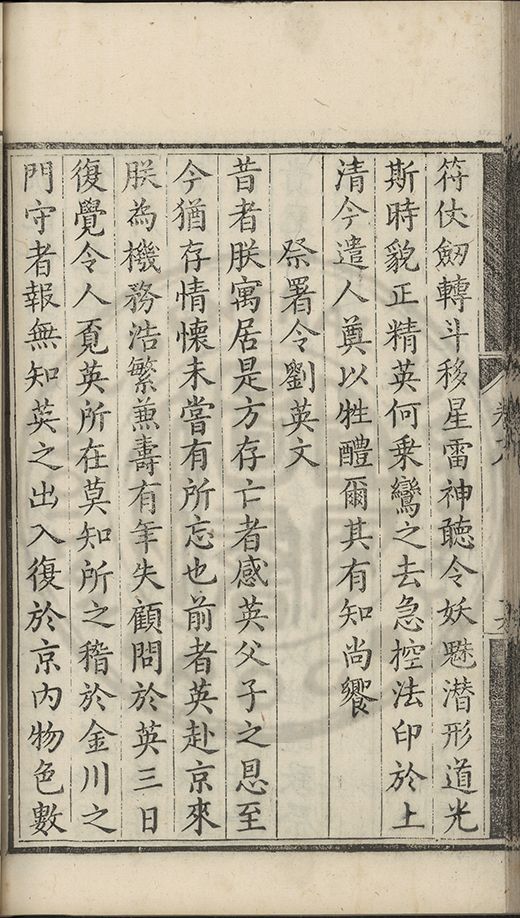 符仗劒轉斗移星雷神聽令妖魅潜形道光
斯時貌正精英何乗鸞之去急控法印於上
清今遣人奠以牲醴爾其有知尚饗
祭署令劉英文
昔者朕寓居是方存亡者感英父子之恩至
今猶存情懷未嘗有所忘也前者英赴京來
朕為機務浩繁兼壽有年失顧問於英三日
復覺令人覔英所在莫知所之稽於金川之
門守者報無知英之出入復於京内物色數